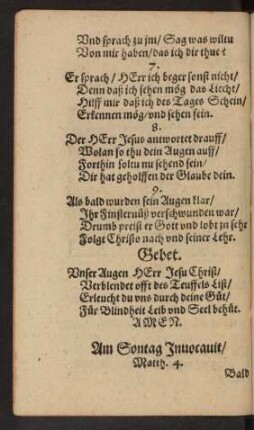 Vnd sprach zu jm / Sag was wiltu
Von mir haben / das ich dir thue?
7.
Er sprach / HErr ich beger sonst nicht /
Denn daß ich sehen mög das Liecht /
Hilff mir daß ich des Tages Schein /
Erkennen mög / vnd sehen fein.
8.
Der HErr Jesus antwortet drauff /
Wolan so thu dein Augen auff /
Forthin soltu nu sehend sein /
Dir hat geholffen der Glaube dein.
9.
Als bald wurden sein Augen klar /
Ihr Finsternüß verschwunden war /
Drumb preißt er Gott vnd lobt zu sehr
Folgt Christo nach vnd seiner Lehr.
Gebet.
Vnser Augen HErr Jesu Christ /
Verblendet offt des Teuffels List /
Erleucht du vns durch deine Güt /
Für Blindheit Leib vnd Seel behüt.
AMEN.
Am Sontag Inuocauit /
Matth. 4.
Bald